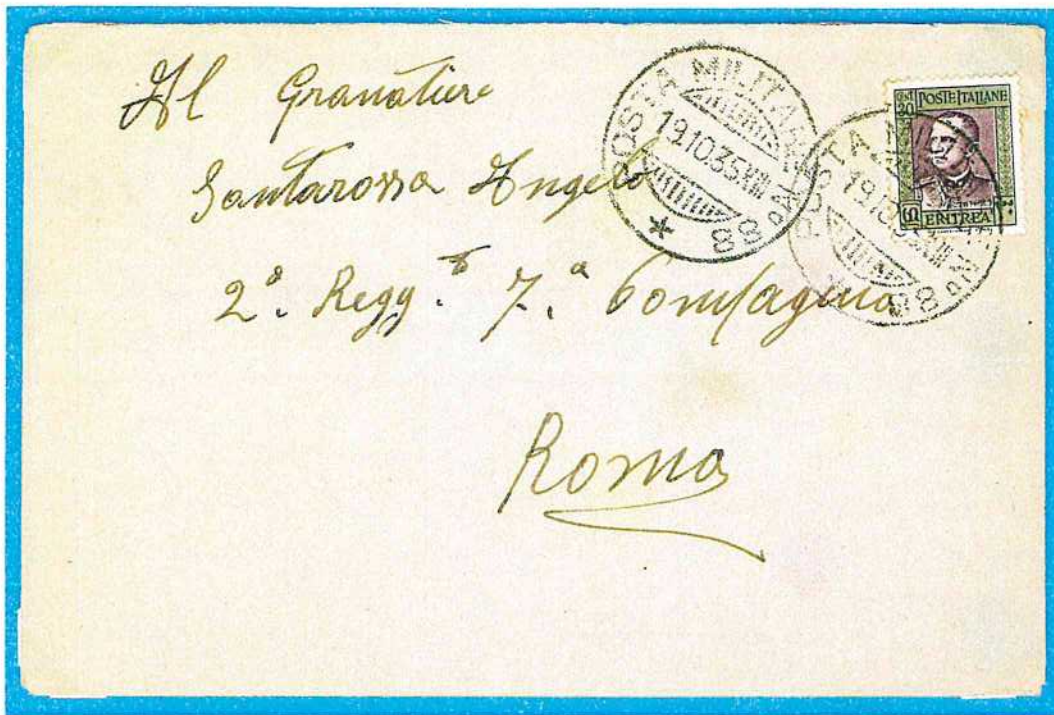 Al Granatiere
Santarossa Angelo
2º. Regg.to 7.ª Compagnia
Roma
POSTA MILITARE
19.10.35.XIII
* 88
POSTA
19.10.35.XIII
88
POSTE ITALIANE
20
ERITREA